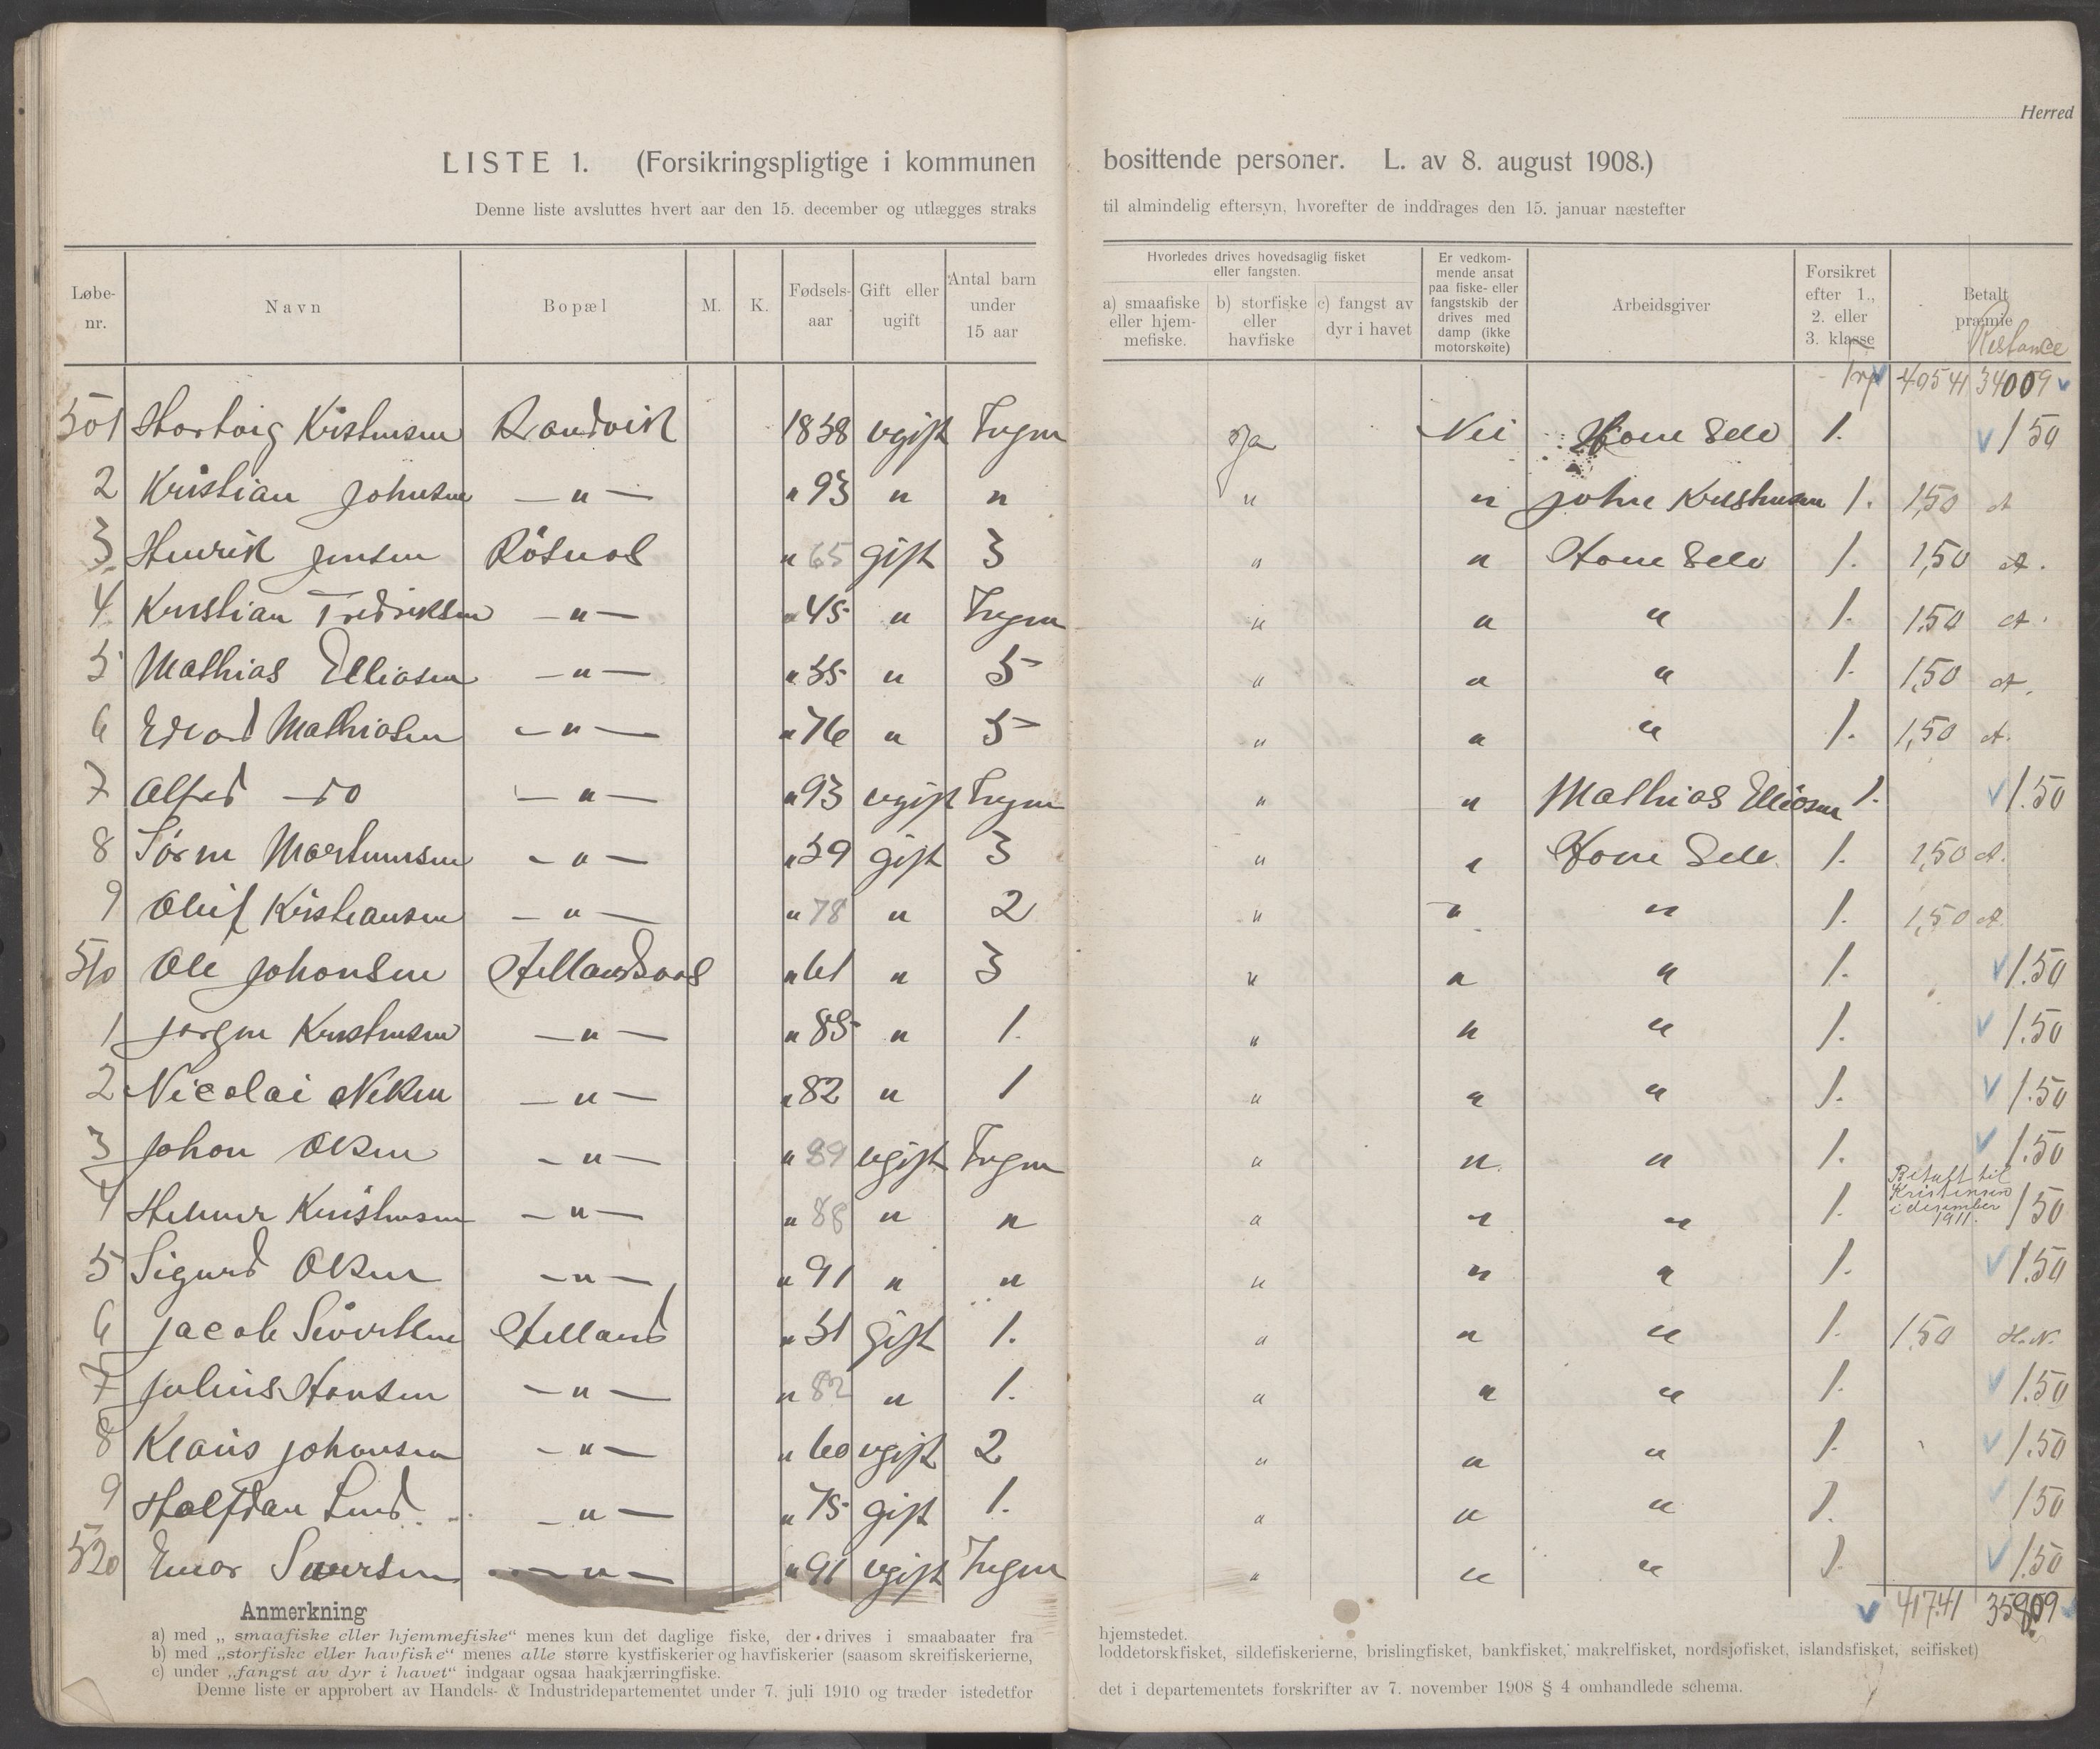 Herred
LISTE 1. (Forsikringspligtige i kommunen bosittende personer. L. av 8. august 1908.)
Denne liste avsluttes hvert aar den 15. december og utlægges straks til almindelig eftersyn, hvorefter de inddrages den 15. januar næstefter
Løbe-nr. Navn Bopæl M. K. Fødsels-aar Gift eller ugift Antal barn under 15 aar Hvorledes drives hovedsaglig fisket eller fangsten. a) smaafiske eller hjem-mefiske. b) storfiske eller havfiske c) fangst av dyr i havet Er vedkom-mende ansat paa fiske- eller fangstskib der drives med damp (ikke motorskøite) Arbeidsgiver Forsikret efter 1., 2. eller 3. klasse Betalt præmie Restance
Trp 405 41 34009
501 Hartvig Kristensen Randvik 1858 ugift Ingen Ja Nei Ham Selv 1. 1 50
2 Kristian Johnsen —"— " 93 " " " " John Kristensen 1. 1,50 A
3 Henrik Jensen Rösnes " 65 gift 3 " " Ham Selv 1. 1,50 A.
4 Kristian Fredriksen —"— " 45 " Ingen " " " 1. 1.50 A.
5 Mathias Elliasen —"— " 55 " 5 " " " 1. 1,50 A.
6 Edvard Mathiasen —"— " 76 " 5 " " " 1. 1,50 A.
7 Alfred —do —"— " 93 ugift Ingen " " Mathias Elliasen 1. 1.50
8 Sören Martinusen —"— " 59 gift 3 " " Ham Selv 1. 1,50 A.
9 Oluf Kristiansen —"— " 78 " 2 " " " 1. 1,50 A
510 Ole Johansen " 61 " 3 " " " 1. 1.50
1 Jørgen Kristensen —"— " 85 " 1. " " " 1. 1.50
2 Nicolai —"— " 82 " 1 " " " 1. 1.50
3 Johan Olsen —"— " 89 ugift Ingen " " " 1. 1.50
4 Helmer Kristensen —"— " 88 " " " " " 1. Betalt til Kristensen i desember 1911. 1 50
5 Sigurd Olsen —"— " 91 " " " " " 1. 1.50
6 Jacob Sivertsen " 51 gift 1. " " " 1. 1.50 H.N.
7 Julius Hansen —"— " 82 " 1. " " " 1. 1.50
8 Klaus Johansen —"— " 60 ugift 2 " " " 1. 1.50
9 Halfdan Lind —"— " 75 gift 1. " " " 1. 1 50
520 Einar —"— " 91 ugift Ingen " " " 1. 1.50
417.41 35809
Anmerkning
a) med „smaafiske eller hjemmefiske“ menes kun det daglige fiske, der drives i smaabaater fra hjemstedet.
b) med „storfiske eller havfiske“ menes alle større kystfiskerier og havfiskerier (saasom skreifiskerierne, loddetorskfisket, sildefiskerierne, brislingfisket, bankfisket, makrelfisket, nordsjøfisket, islandsfisket, seifisket)
c) under „fangst av dyr i havet“ indgaar ogsaa haakjærringfiske.
Denne liste er approbert av Handels- & Industridepartementet under 7. juli 1910 og træder istedetfor det i departementets forskrifter av 7. november 1908 § 4 omhandlede schema.